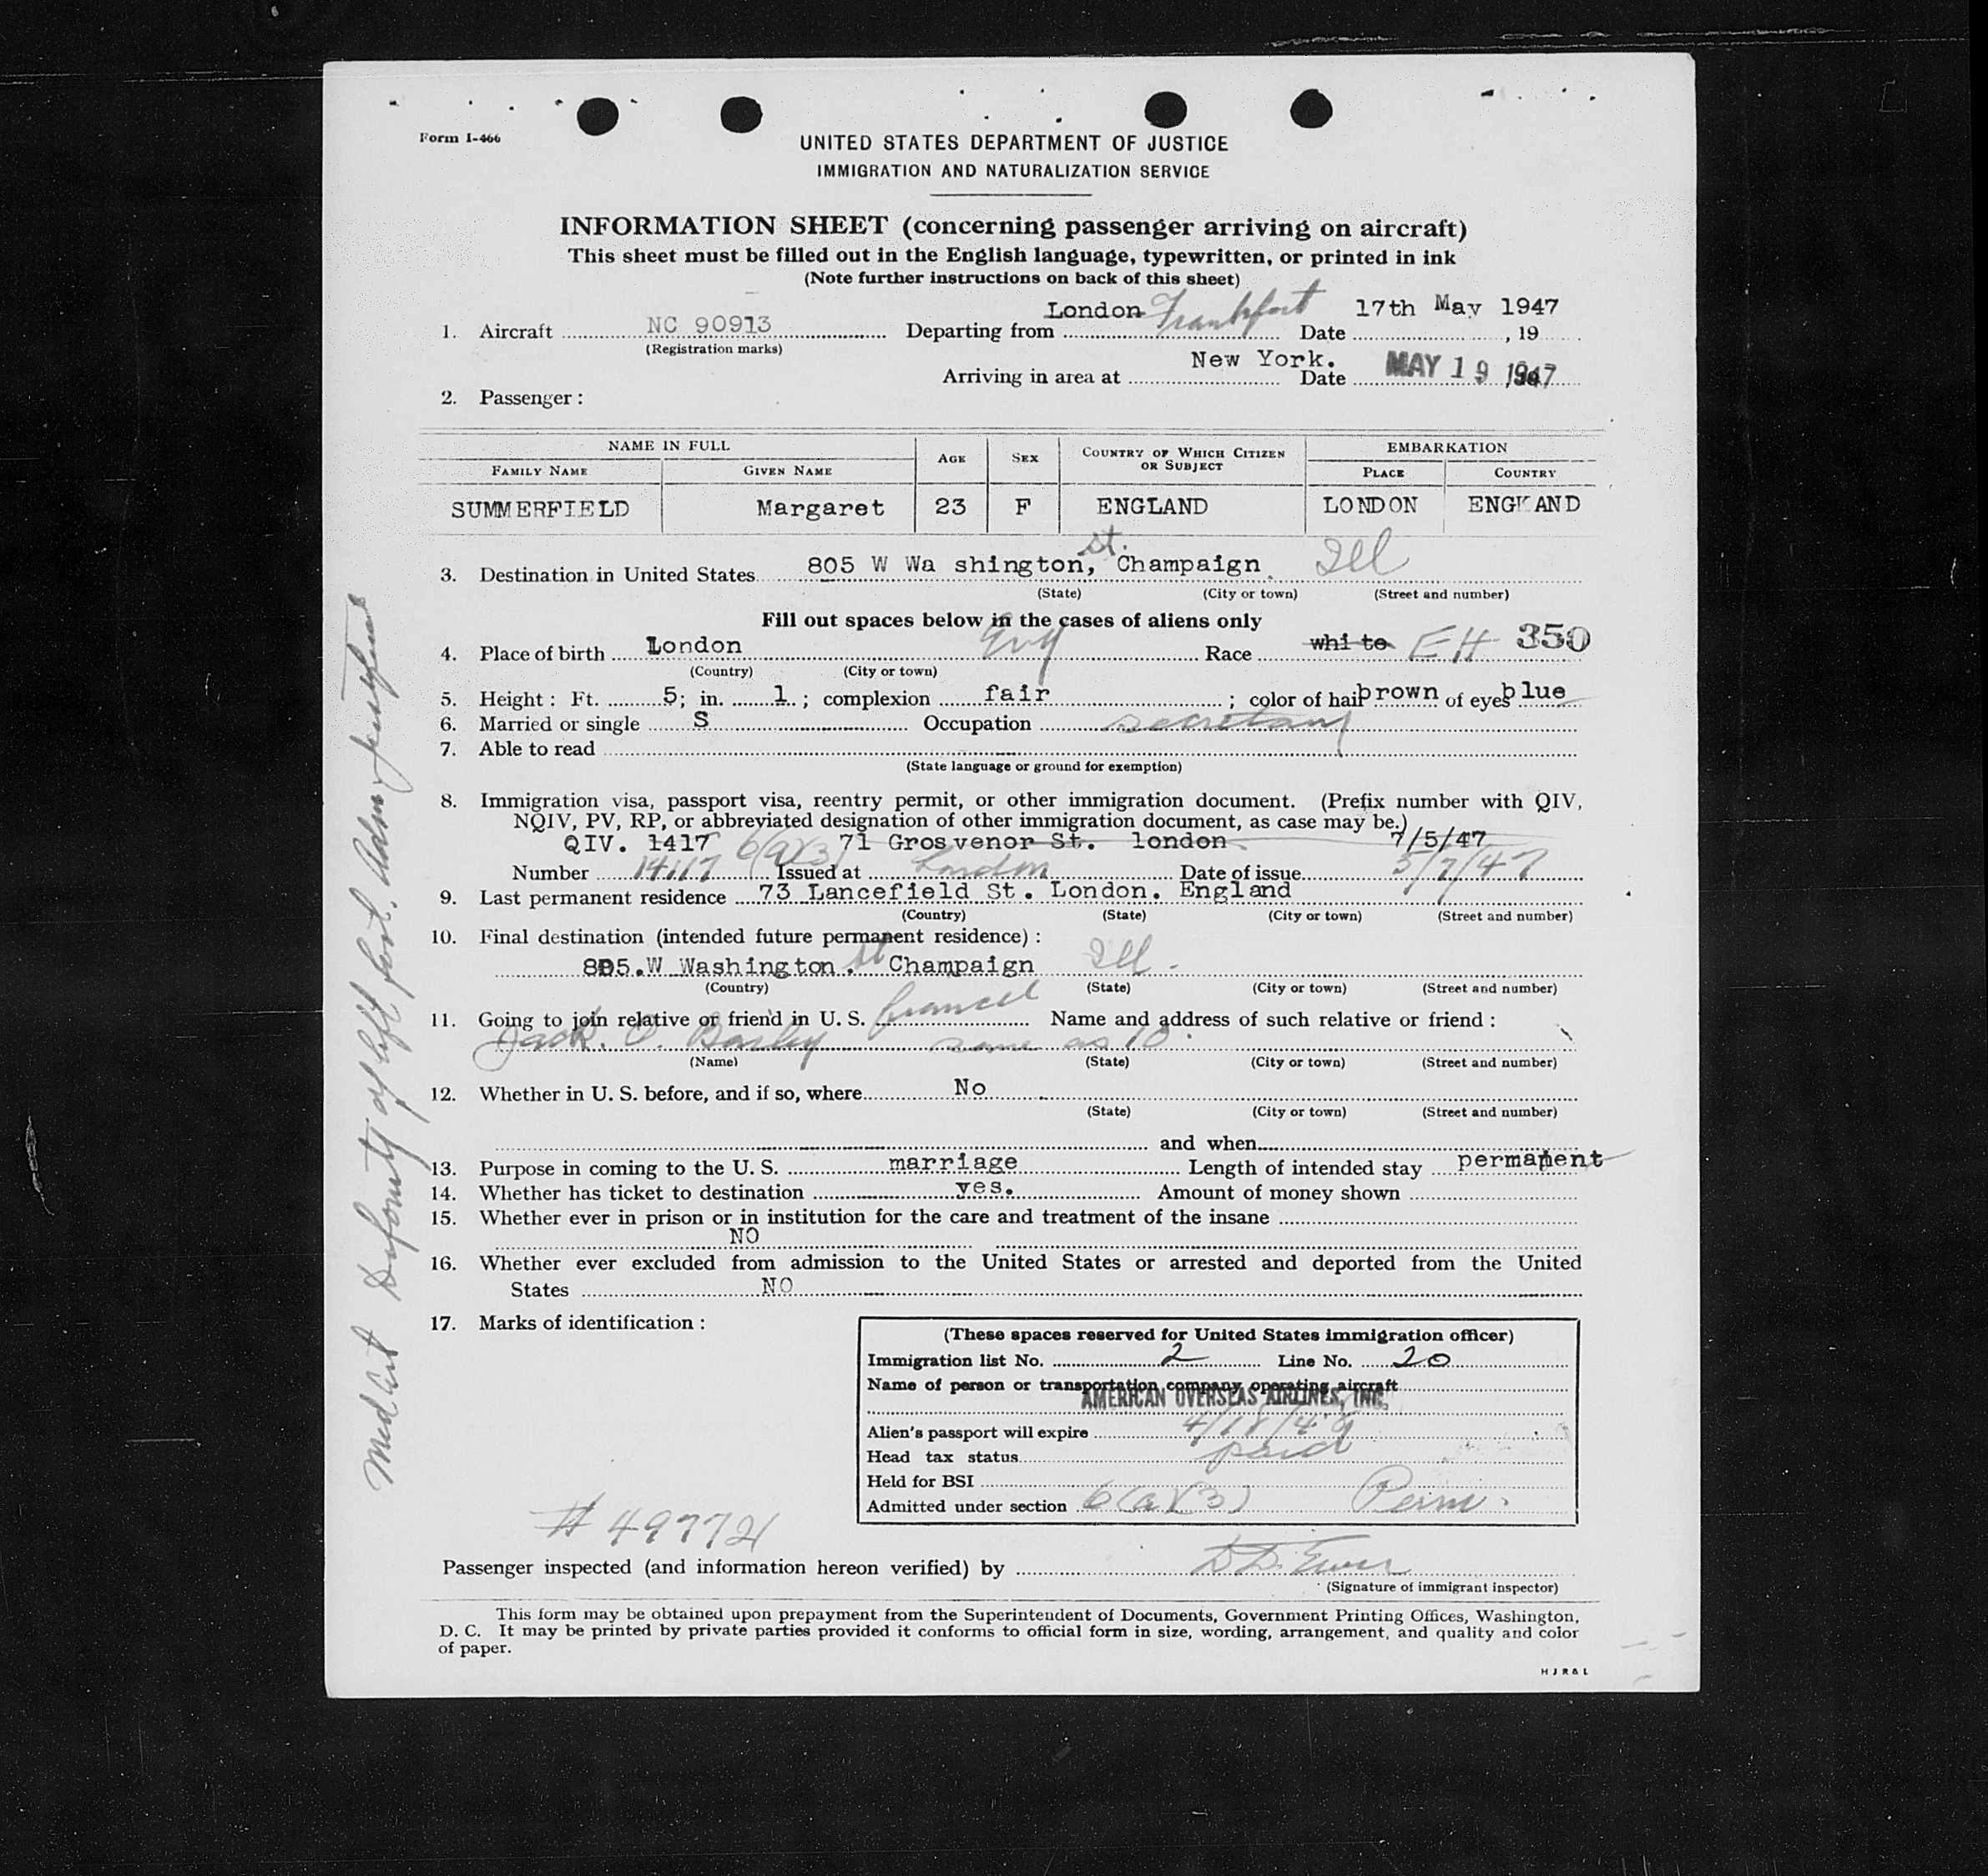 Form I-466
UNITED STATES DEPARTMENT OF JUSTICE
IMMIGRATION AND NATURALIZATION SERVICE
INFORMATION SHEET (concerning passenger arriving on aircraft)
This sheet must be filled out in the English language, typewritten, or printed in ink
(Note further instructions on back of this sheet)
1. Aircraft NC 90913 Departing from London Frankfort Date 17th May 1947, 19
(Registration marks)
Arriving in area at New York. Date MAY 19 1947
2. Passenger:
NAME IN FULL AGE SEX COUNTRY OF WHICH CITIZEN OR SUBJECT EMBARKATION
FAMILY NAME GIVEN NAME PLACE COUNTRY
SUMMERFIELD Margaret 23 F ENGLAND LONDON ENGKAND
3. Destination in United States 805 W Wa shington, st. Champaign Ill
(State) (City or town) (Street and number)
Fill out spaces below in the cases of aliens only
4. Place of birth London Eng Race white EH 350
(Country) (City or town)
5. Height: Ft. 5; in. 1; complexion fair; color of hair brown of eyes blue
6. Married or single S Occupation secretary
7. Able to read
(State language or ground for exemption)
8. Immigration visa, passport visa, reentry permit, or other immigration document. (Prefix number with QIV,
NQIV, PV, RP, or abbreviated designation of other immigration document, as case may be.)
QIV. 1417 6(a)(3) 71 Grosvenor St. london 7/5/47
Number 14117 Issued at London Date of issue 5/7/47
9. Last permanent residence 73 Lancefield St. London. England
(Country) (State) (City or town) (Street and number)
10. Final destination (intended future permanent residence):
805.W Washington. st Champaign Ill.
(Country) (State) (City or town) (Street and number)
11. Going to join relative or friend in U. S. fiancee Name and address of such relative or friend:
Jack. O. same as 10.
(Name) (State) (City or town) (Street and number)
12. Whether in U. S. before, and if so, where No
(State) (City or town) (Street and number)
and when
13. Purpose in coming to the U. S. marriage Length of intended stay permanent
14. Whether has ticket to destination yes. Amount of money shown
15. Whether ever in prison or in institution for the care and treatment of the insane
NO
16. Whether ever excluded from admission to the United States or arrested and deported from the United
States NO
17. Marks of identification:
(These spaces reserved for United States immigration officer)
Immigration list No. 2 Line No. 20
Name of person or transportation company operating aircraft
AMERICAN OVERSEAS AIRLINES, INC.
Alien's passport will expire 4/18/49
Head tax status paid
Held for BSI
Admitted under section 6(a)(3) Perm.
# 49772
Passenger inspected (and information hereon verified) by D.D. Ewer
(Signature of immigrant inspector)
This form may be obtained upon prepayment from the Superintendent of Documents, Government Printing Offices, Washington,
D. C. It may be printed by private parties provided it conforms to official form in size, wording, arrangement, and quality and color
of paper.
H J R & L
Med Cert Deformity of left foot. Adm